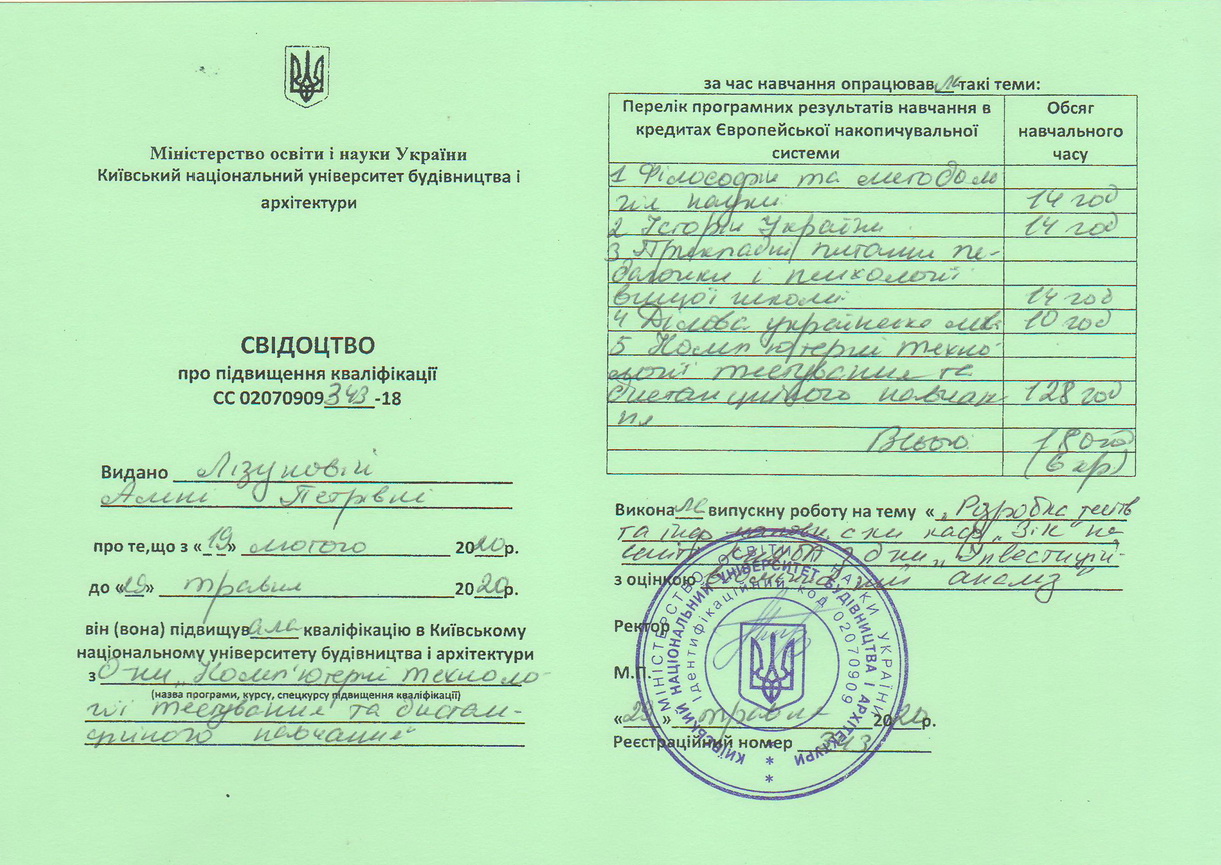 Міністерство освіти і науки України
Київський національний університет будівництва і
архітектури
СВІДОЦТВО
про підвищення кваліфікації
СС 02070909 343 -18
Видано Лізуновій
Аллі Петрівні
про те,що з «19» лютого 2020р.
до «29» травня 2020р.
він (вона) підвищувала кваліфікацію в Київському
національному університету будівництва і архітектури
з д-ни „Комп'ютерні техноло-
(назва програми, курсу, спецкурсу підвищення кваліфікації)
гії тестування та дистан-
ційного навчання"
за час навчання опрацювавла такі теми:
Перелік програмних результатів навчання в
кредитах Європейської накопичувальної
системи
Обсяг
навчального
часу
1 Філософія та методоло
гія науки 14 год
2 Історія України 14 год
3 Прикладні питання пе-
дагогіки і психології
вищої школи 14 год
4 Ділова українська мова 10 год
5 Комп'ютерні техно-
логії тестування та
дистанційного навчан- 128 год
ня
Всього 180 год
(6 кр)
Виконала випускну роботу на тему « „Розробка тестів
та інд.
з д-ни „Інвестицій-
з оцінкою аналіз
Ректор
М.П.
«29» травня 2020р.
Реєстраційний номер 343
МІНІСТЕРСТВО ОСВІТИ І НАУКИ УКРАЇНИ
КИЇВСЬКИЙ НАЦІОНАЛЬНИЙ УНІВЕРСИТЕТ БУДІВНИЦТВА І АРХІТЕКТУРИ
Ідентифікаційний код 02070909